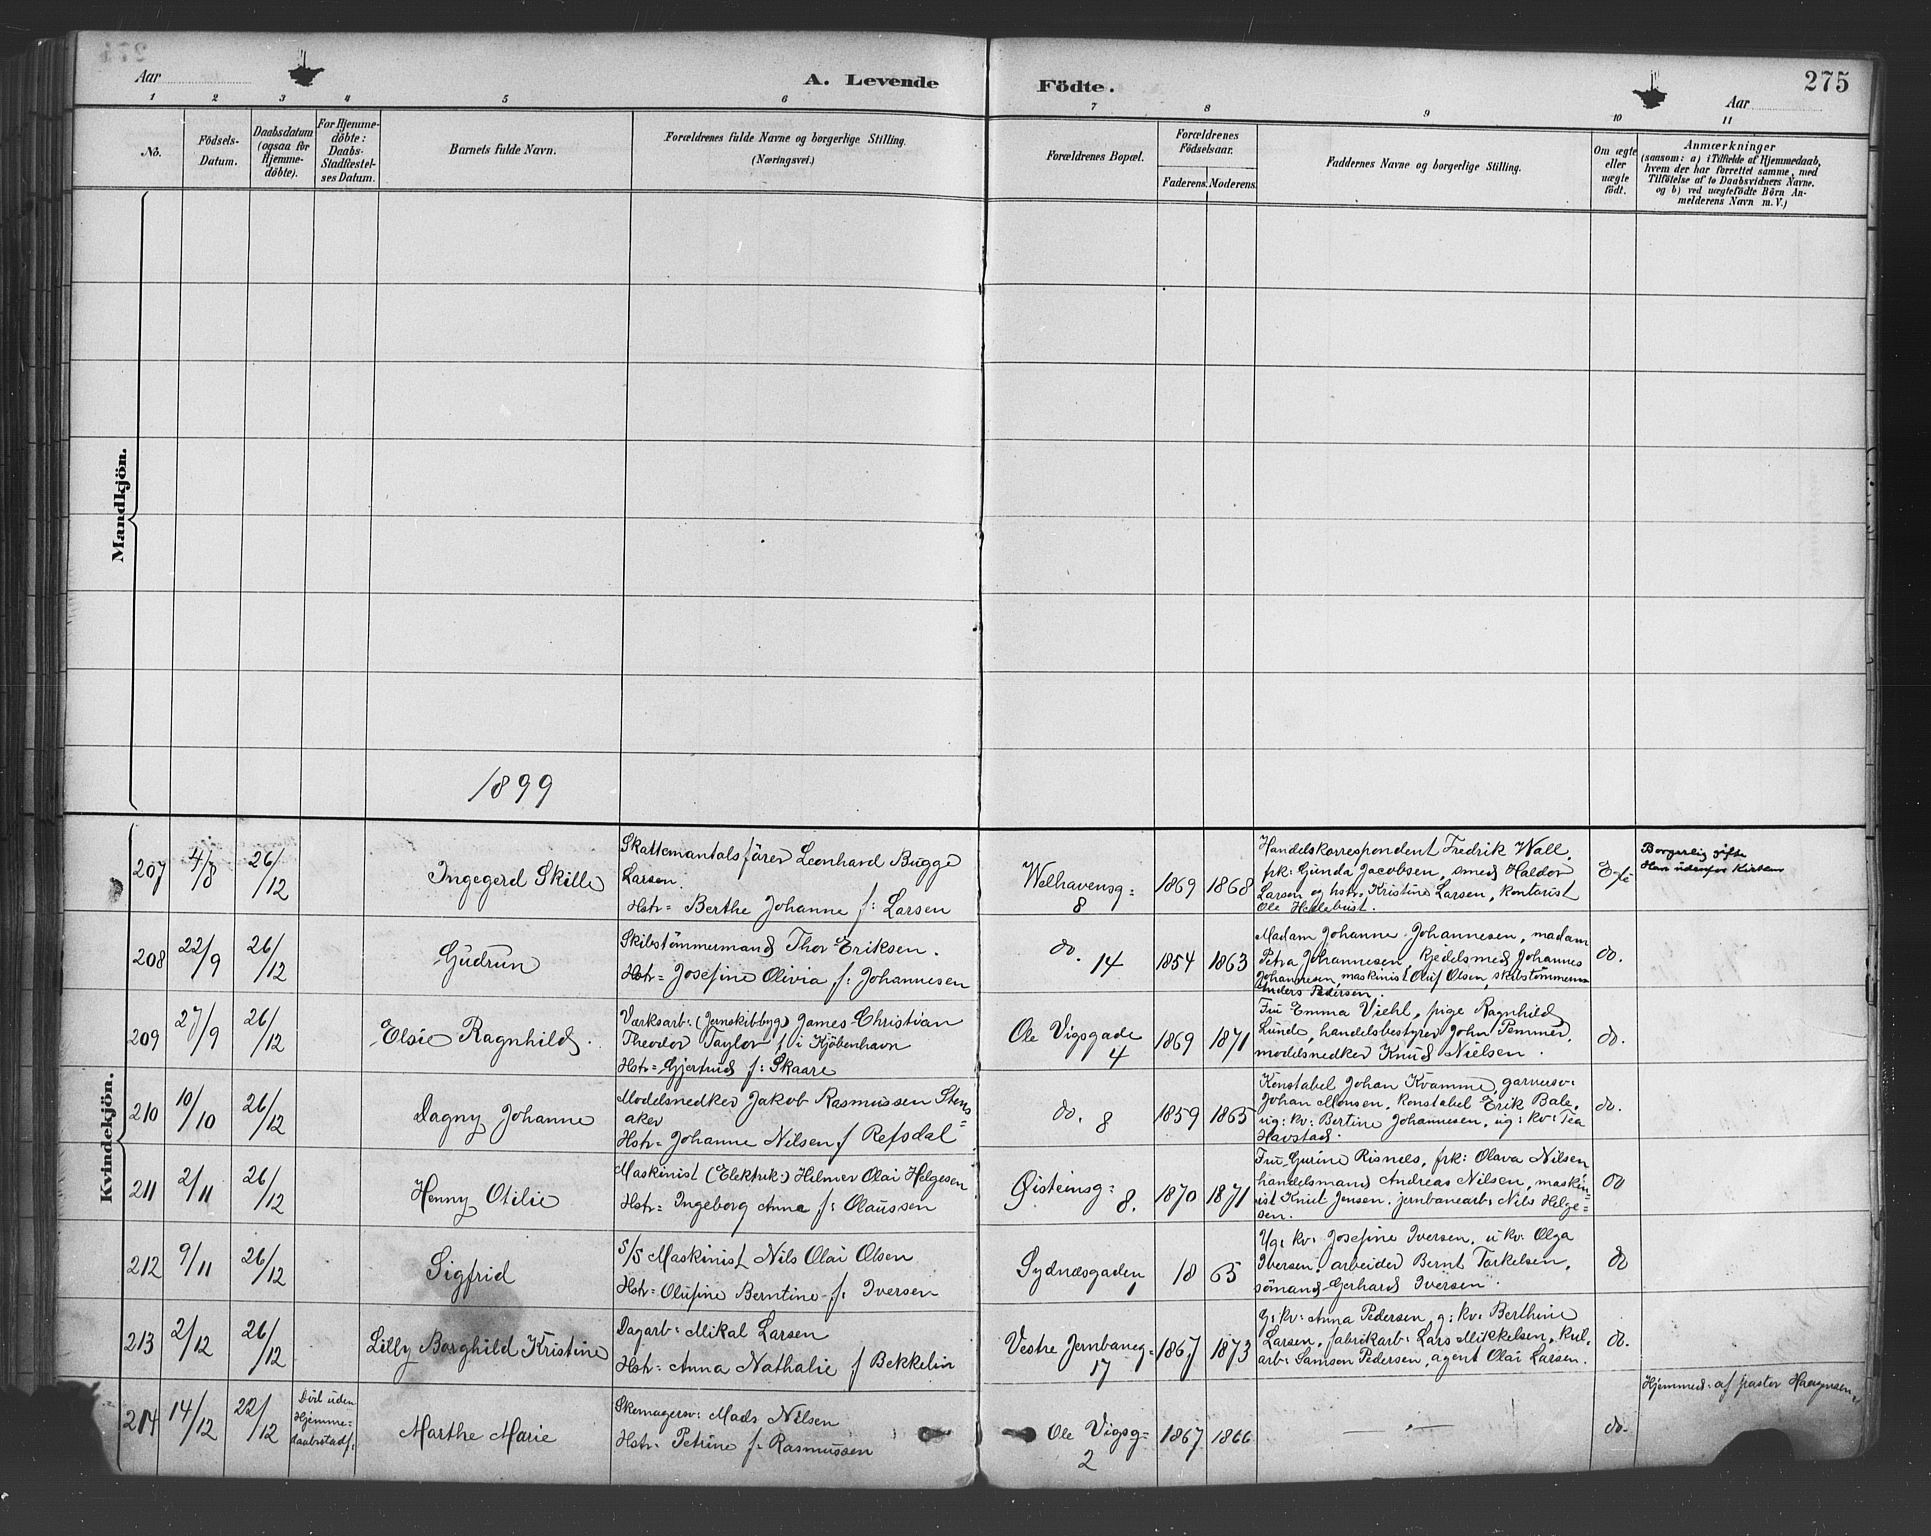 Aar
A. Levende
Födte.
Aar
275
1 2 3 4 5 6 7 8 9 10 11
No.
Födsels-
Datum.
Daabsdatum
(ogsaa for
Hjemme-
döbte).
For Hjemme-
döbte:
Daabs-
Stadfæstel-
ses Datum.
Barnets fulde Navn.
Forældrenes fulde Navne og borgerlige Stilling.
(Næringsvei.)
Forældrenes Bopæl.
Forældrenes
Födselsaar.
Faderens. Moderens.
Faddernes Navne og borgerlige Stilling.
Om ægte
eller
uægte
födt.
Anmærkninger
(saasom: a) i Tilfælde af Hjemmedaab,
hvem der har forrettet samme, med
Tilföielse af to Daabsvidners Navne.
og b) ved uægtefödte Börn An-
melderens Navn m. V.)
Mandkjön.
1899
Kvindekjön.
207 4/8 26/12
Ingegerd Skille
Skattemantalsfører Leonhard Bugge
Larsen.
Hstr= Berthe Johanne f: Larsen
Welhavensg=
8
1869 1868
Handelskorrespondent Fredrik Wall,
frk: Gunda Jacobsen, smed Haldor
Larsen og hstr. Kristine Larsen, kontorist
Ole Hellebust.
Borgerlig gifte
Han udenfor Kirken
208 22/9 26/12
Gudrun
Skibstømmermand Thor Eriksen.
Hstr= Josefine Olivia f: Johannesen
do. 14
1854 1863
Madam Johanne Johannesen, madam
Petra Johannesen, kjedelsmed Johannes
Johannesen, maskinist Oluf Olsen, skibstømmerm
Anders Pedersen.
do.
209 27/9 26/12
Elsie Ragnhild.
Værksarb: (Jernskibbyg) James Christian
Theodor Taylor f. i Kjöbenhavn
Hstr= Gjertrud f: Skaare
Ole Vigsgade
4
1869 1871
Fru Emma Viehl, pige Ragnhild
Lunde, handelsbestyrer John Pemmer,
modelsnedker Knud Nielsen.
do.
210 10/10 26/12
Dagny Johanne
Modelsnedker Jakob Rasmussen Stens=
aker
Hstr= Johanne Nilsen f Refsdal
do. 8
1859 1865
Konstabel Johan Kvamme, garversv:
Johan Monsen, konstabel Erik Bale,
ug: kv: Bertine Johannesen, ug: kv: Tea
Havstad.
do.
211 2/11 26/12
Henny Otilie
Maskinist (Elektrik:) Helmer Olai Helgesen
Hstr= Ingeborg Anna f: Olaussen
Øisteinsg=
8.
1870 1871
Fru Gurine Risnes, frk: Olava Nilsen
handelsmand Andreas Nilsen, maskin=
ist Knut Jensen, jernbanearb: Nils Helge=
sen.
do
212 9/11 26/12
Sigfrid
S/S Maskinist Nils Olai Olsen
Hstr= Olufine Berntine f: Iversen
Sydnæsgaden
1
18 65
Ug: kv: Josefine Iversen, u kv: Olga
Iversen, arbeider Bernt Torkelsen,
sömand Gerhard Iversen.
do
213 2/12 26/12
Lilly Borghild Kristine
Dagarb: Mikal Larsen
Hstr= Anna Nathalie f Bekkelin
Vestre Jernbaneg=
17
1867 1873
G: kv: Anna Pedersen, g: kv: Berthine
Larsen, fabrikarb: Lars Mikkelsen, kul.
arb: Samson Pedersen, agent Olai Larsen.
do.
214 14/12 22/12
Död uden
Hjemme=
daabsstadf:
Marthe Marie
Skomagersv: Mads Nilsen
Hstr= Petrine f. Rasmussen
Ole Vigsg=
2
1867 1866
do.
Hjemmed: af pastor